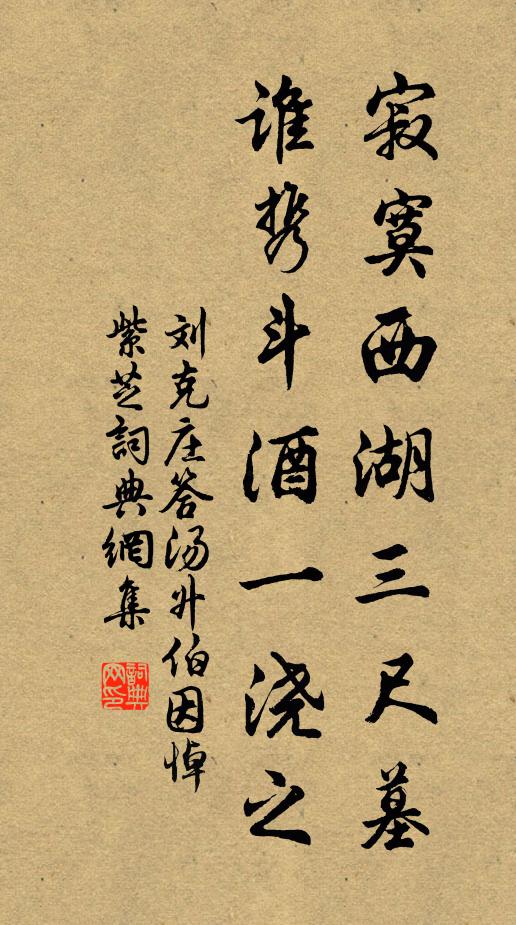 寂寞西湖三尺墓
谁携斗酒一浇之
刘克庄答汤升伯因悼
紫芝詞典網集
詞典网印